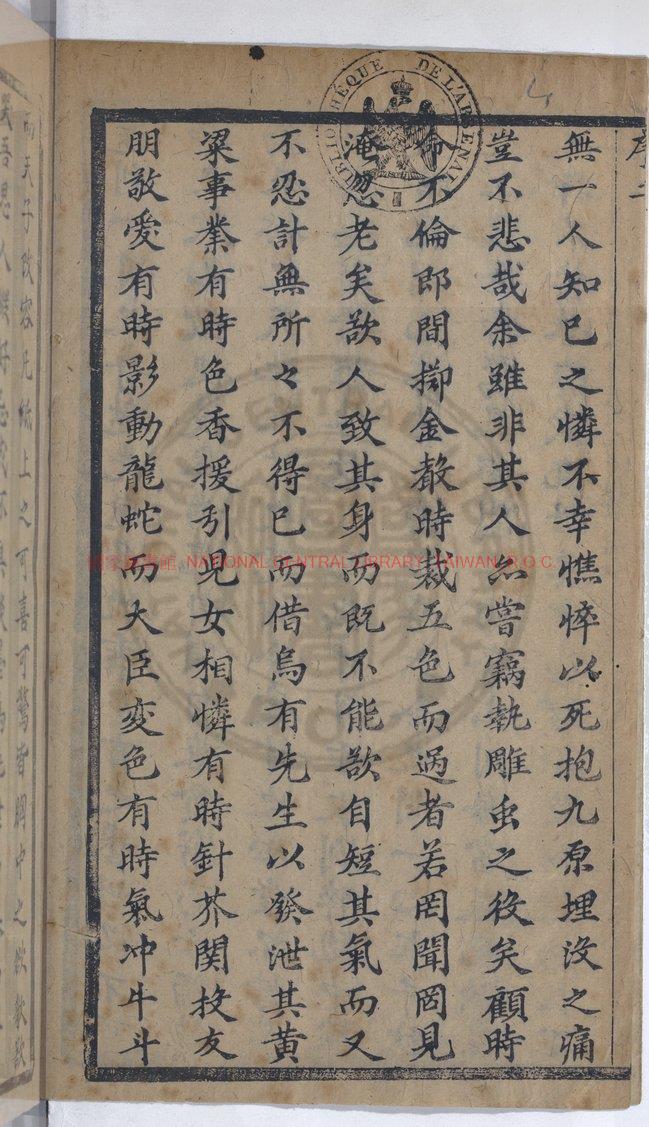 無一人知已之憐不幸憔悴以死抱九原埋沒之痛
豈不悲哉余雖非其人亦嘗竊執雕虫之役矣顧時
命不倫即間擲金聲時裁五色而過者若罔聞罔見
淹忽老矣欲人致其身而既不能欲自短其氣而又
不忍計無所々不得已而借烏有先生以發泄其黃
粱事業有時色香援引児女相憐有時針芥関投友
朋敬愛有時影動龍蛇而大臣変色有時氣冲牛斗
而天子改容凡紙上之可喜可驚皆胸中之欲歌欲
BIBLIOTHÈQUE DE L'ARSENAL
國家圖書館 NATIONAL CENTRAL LIBRARY, TAIWAN (R.O.C.)